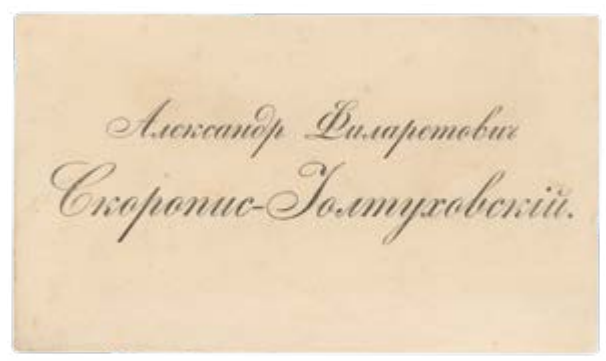 Александр Филаретович
Скоропис-Іолтуховскій.